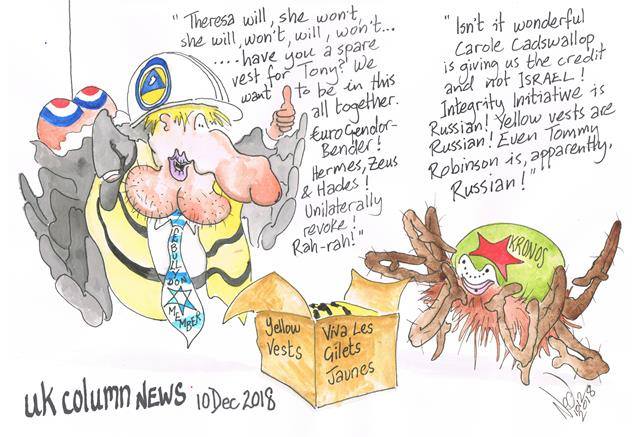 "Theresa will, she won't,
she will, won't, will, won't...
....have you a spare
vest for Tony? We
want to be in this
all together.
€uroGendor-
Bender!
Hermes, Zeus
& Hades!
Unilaterally
revoke!
Rah-rah!"
"Isn't it wonderful
Carole Cadswallop
is giving us the credit
and not ISRAEL!
Integrity Initiative is
Russian! Yellow vests are
Russian! Even Tommy
Robinson is, apparently,
Russian!"
MEMBER
KRONOS
Yellow
Vests
Viva Les
Gilets
Jaunes
UK Column NEWS 10 Dec 2018